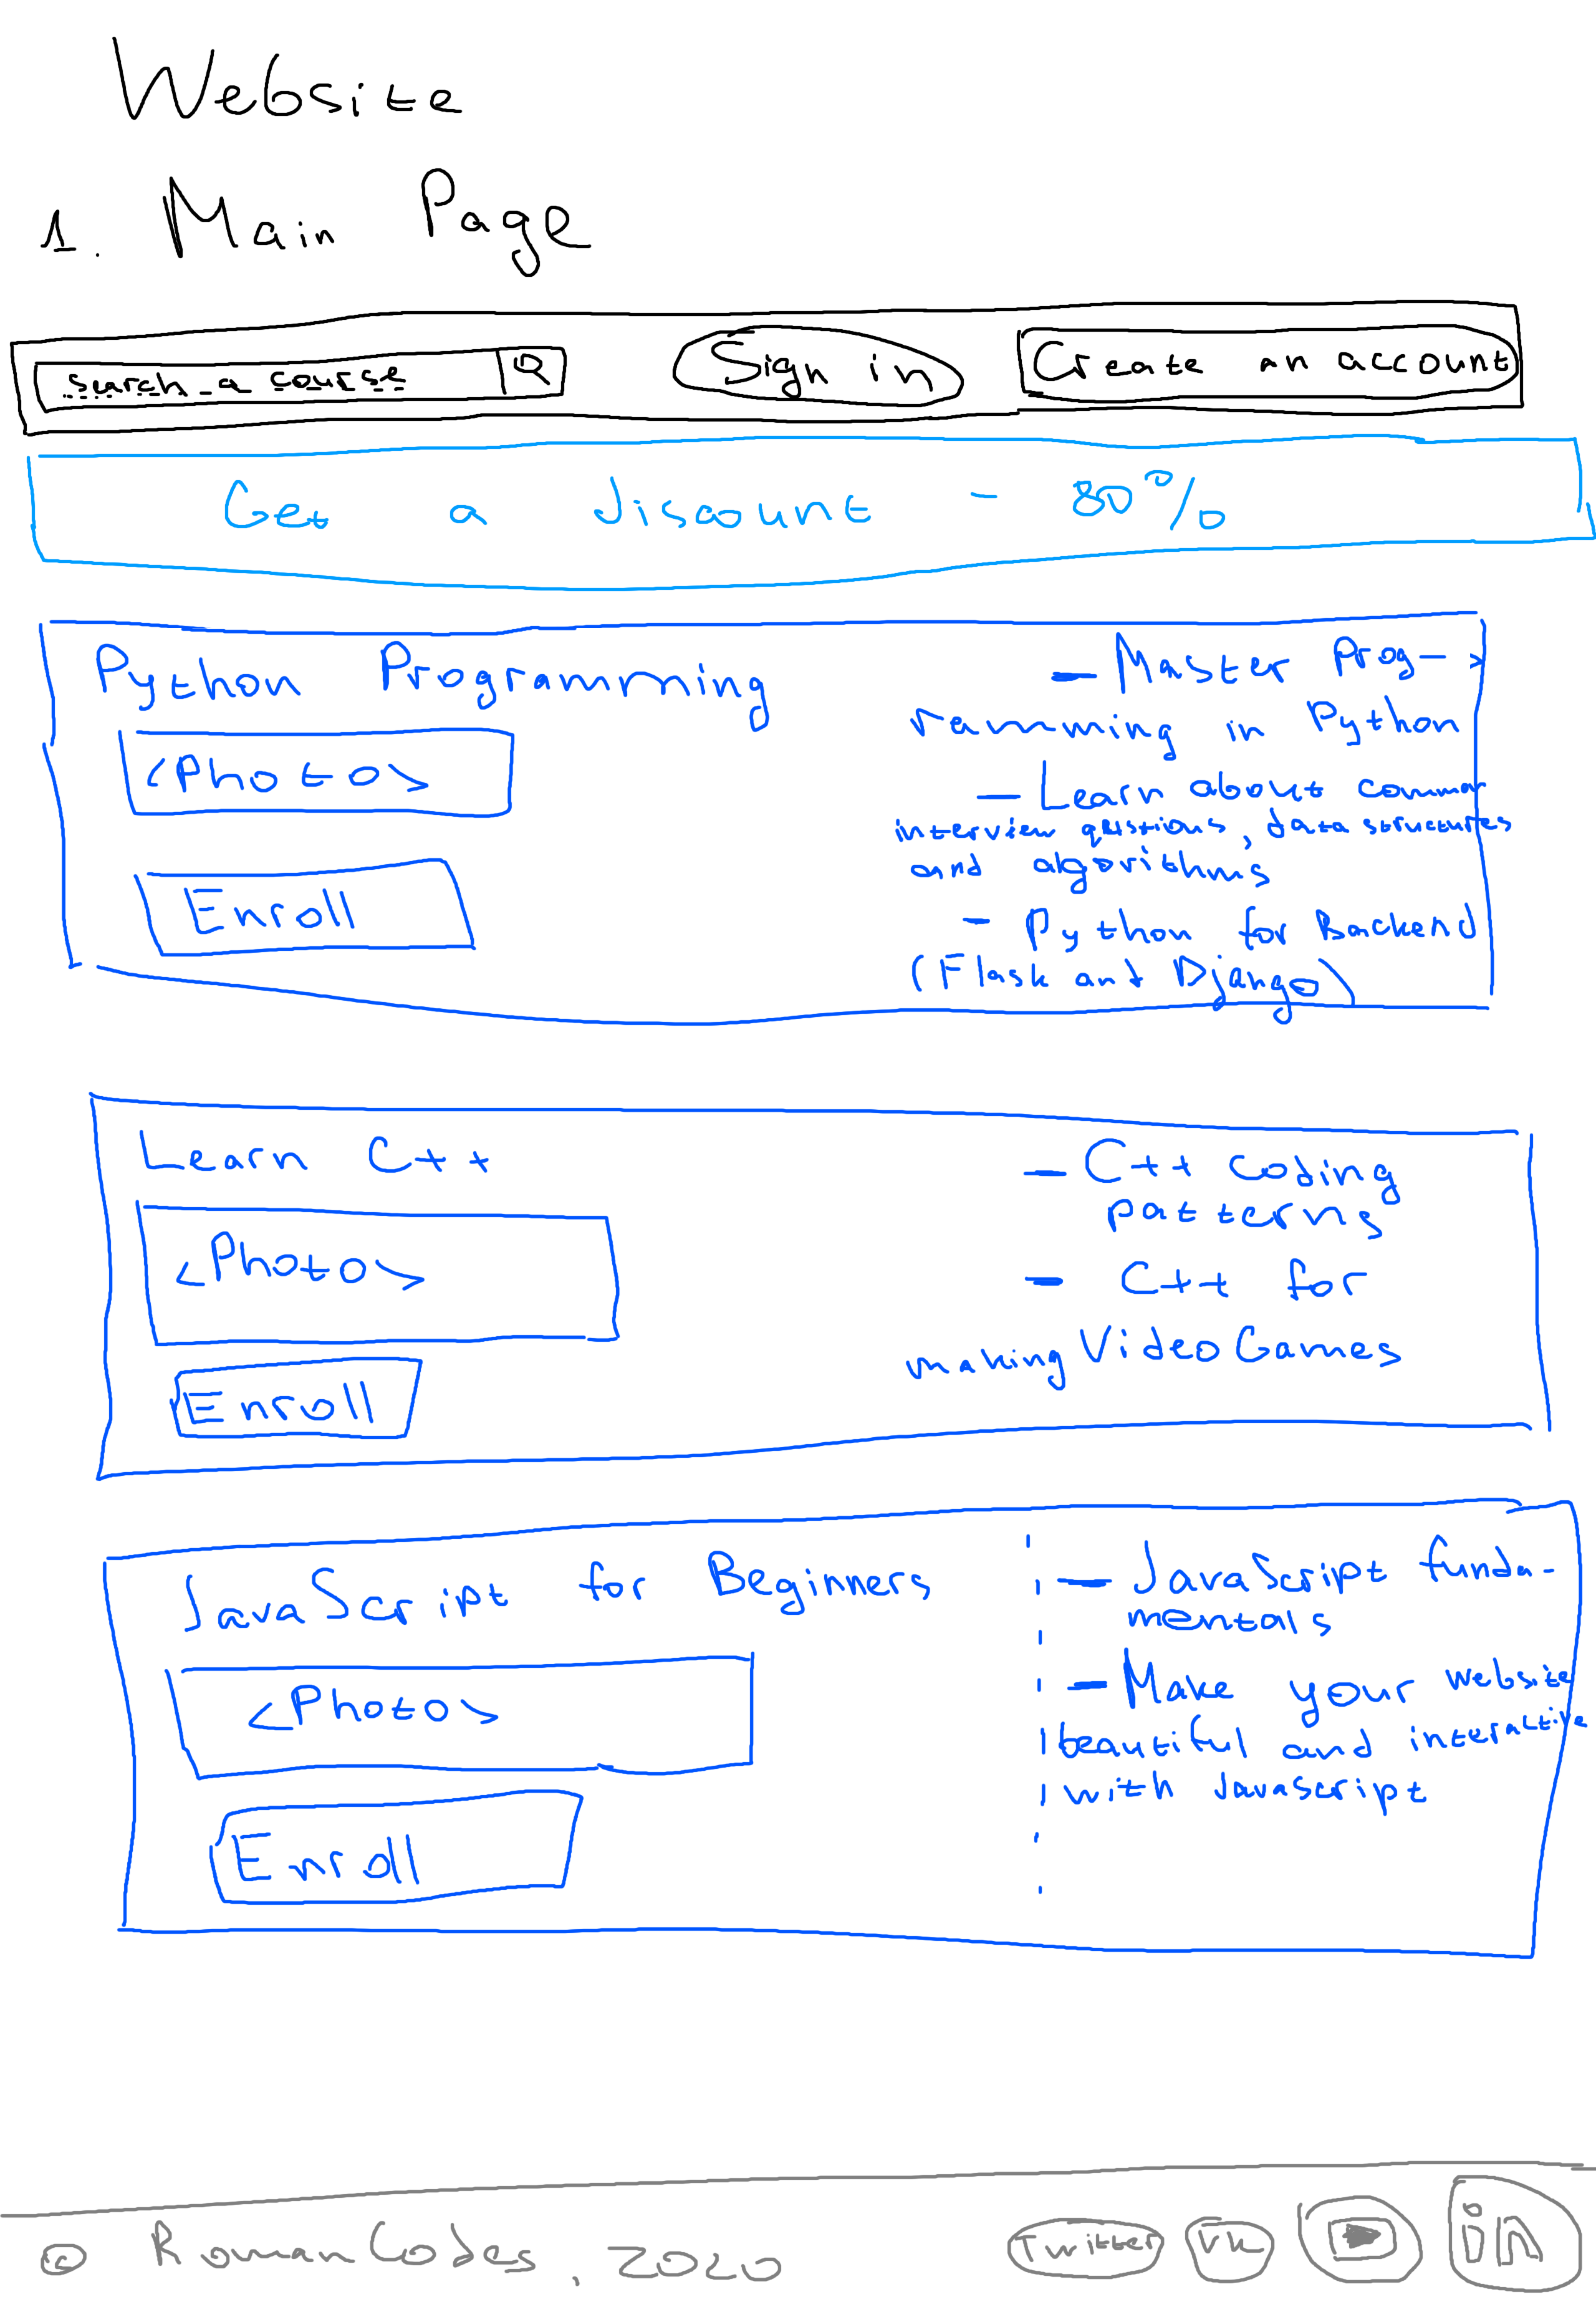 Website
1. Main Page
search a course
Sign in
Create an account
Get a discount - 80%
Python Programming
<Photo>
Enroll
- Master Prog-
ramming in Python
- Learn about common
interview questions, data structures
and algorithms
- Python for Backend
(Flask and Django)
Learn C++
<Photo>
Enroll
- C++ coding
patterns
- C++ for
making VideoGames
JavaScript for Beginners
<Photo>
Enroll
- JavaScript funda-
mentals
- Make your website
beautiful and interactive
with JavaScript
© RomanCodes, 2020
Twitter
VK
in